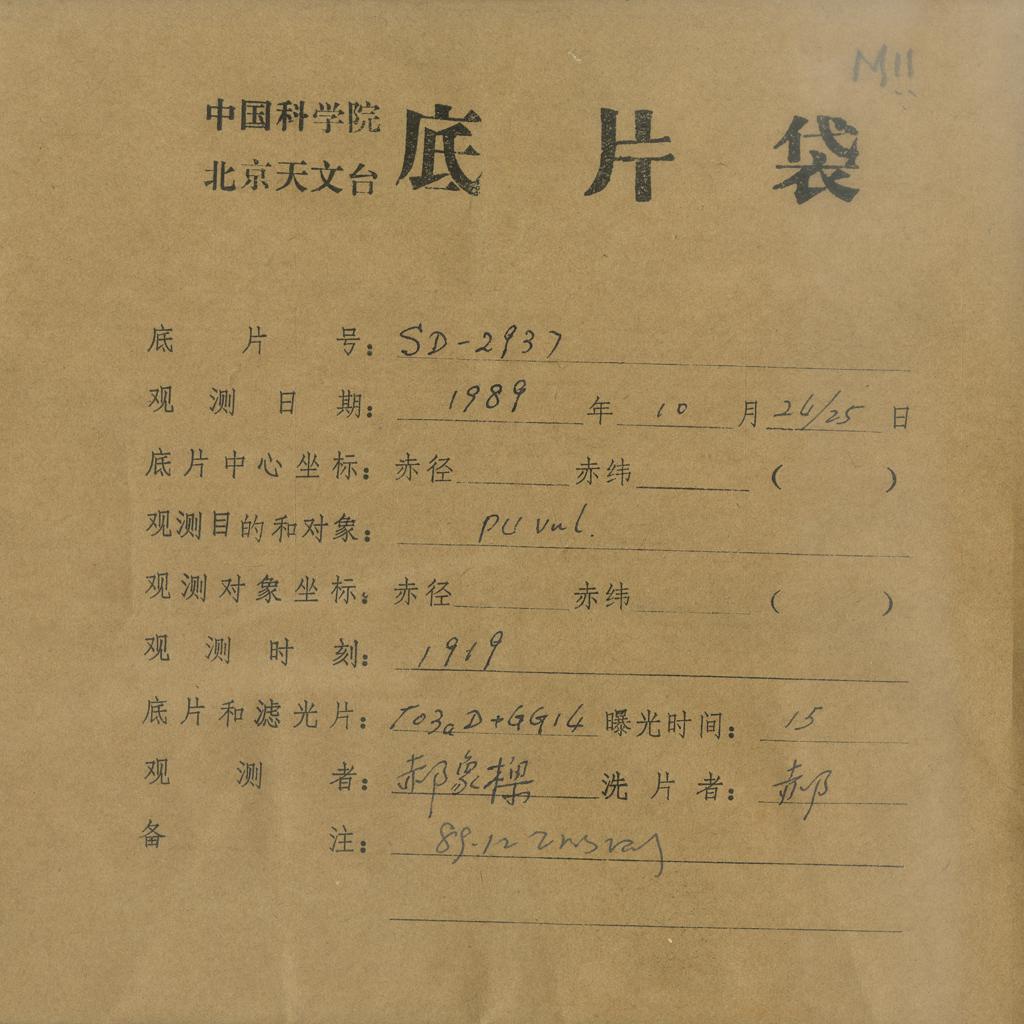 M11
中国科学院
北京天文台
底片袋
底片号：SD-2937
观测日期：1989年10月24/25日
底片中心坐标：赤径 赤纬 （ ）
观测目的和对象：PU Vul.
观测对象坐标：赤径 赤纬 （ ）
观测时刻：1919
底片和滤光片：103aD+GG14 曝光时间：15
观测者：郝象樑 洗片者：郝
备注：89.12